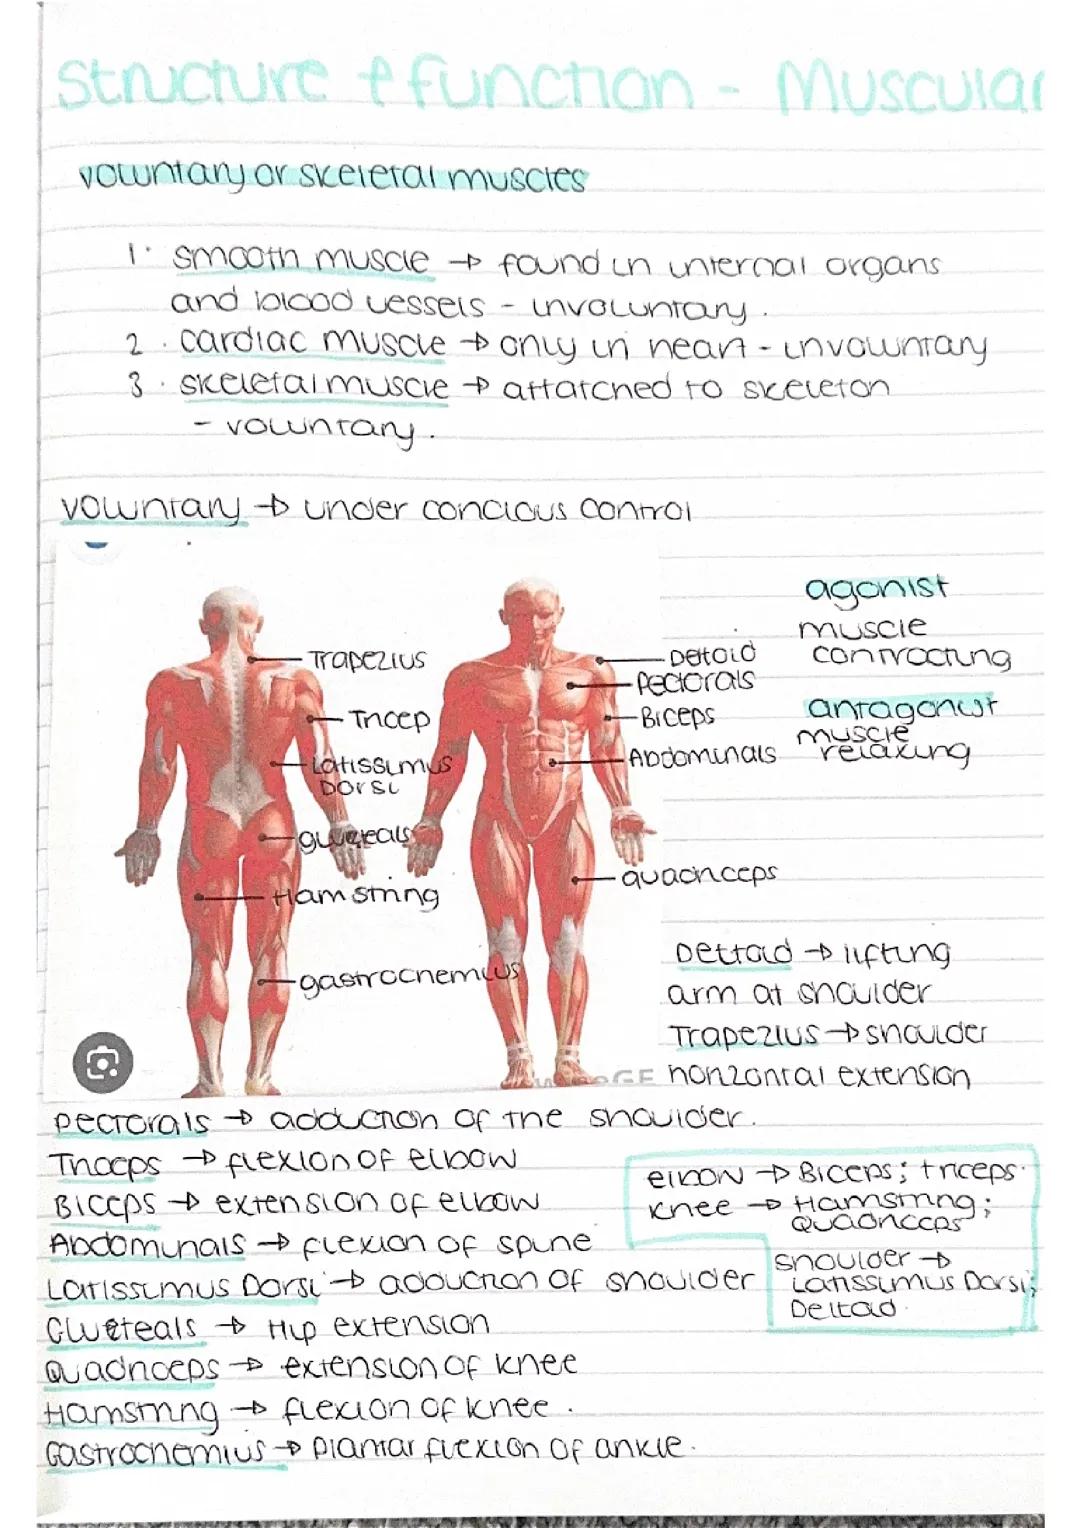 Structure & function - Muscular
voluntary or skeletal muscles
1. smooth muscle → found in internal organs
and blood vessels - involuntary.
2. cardiac muscle → only in heart - involuntary
3. skeletal muscle → attatched to skeleton
- voluntary.
voluntary → under concious control
agonist
muscle
contracting
antagonist
muscle
relaxing
Trapezius
Tricep
Latissimus
Dorsi
gluteals
Hamstring
gastrocnemius
Deltoid
Pectorals
Biceps
Abdominals
quadriceps
Deltoid → lifting
arm at shoulder
Trapezius → shoulder
horizontal extension
pectorals → adduction of the shoulder.
Triceps → flexion of elbow
Biceps → extension of elbow
Abdominals → flexion of spine
Latissimus Dorsi → adduction of shoulder
Gluteals → Hip extension
Quadriceps → extension of knee
Hamstring → flexion of knee.
Gastrocnemius → Plantar flexion of ankle.
elbow → Biceps; triceps.
knee → Hamstring;
Quadriceps
shoulder →
Latissimus Dorsi;
Deltoid.